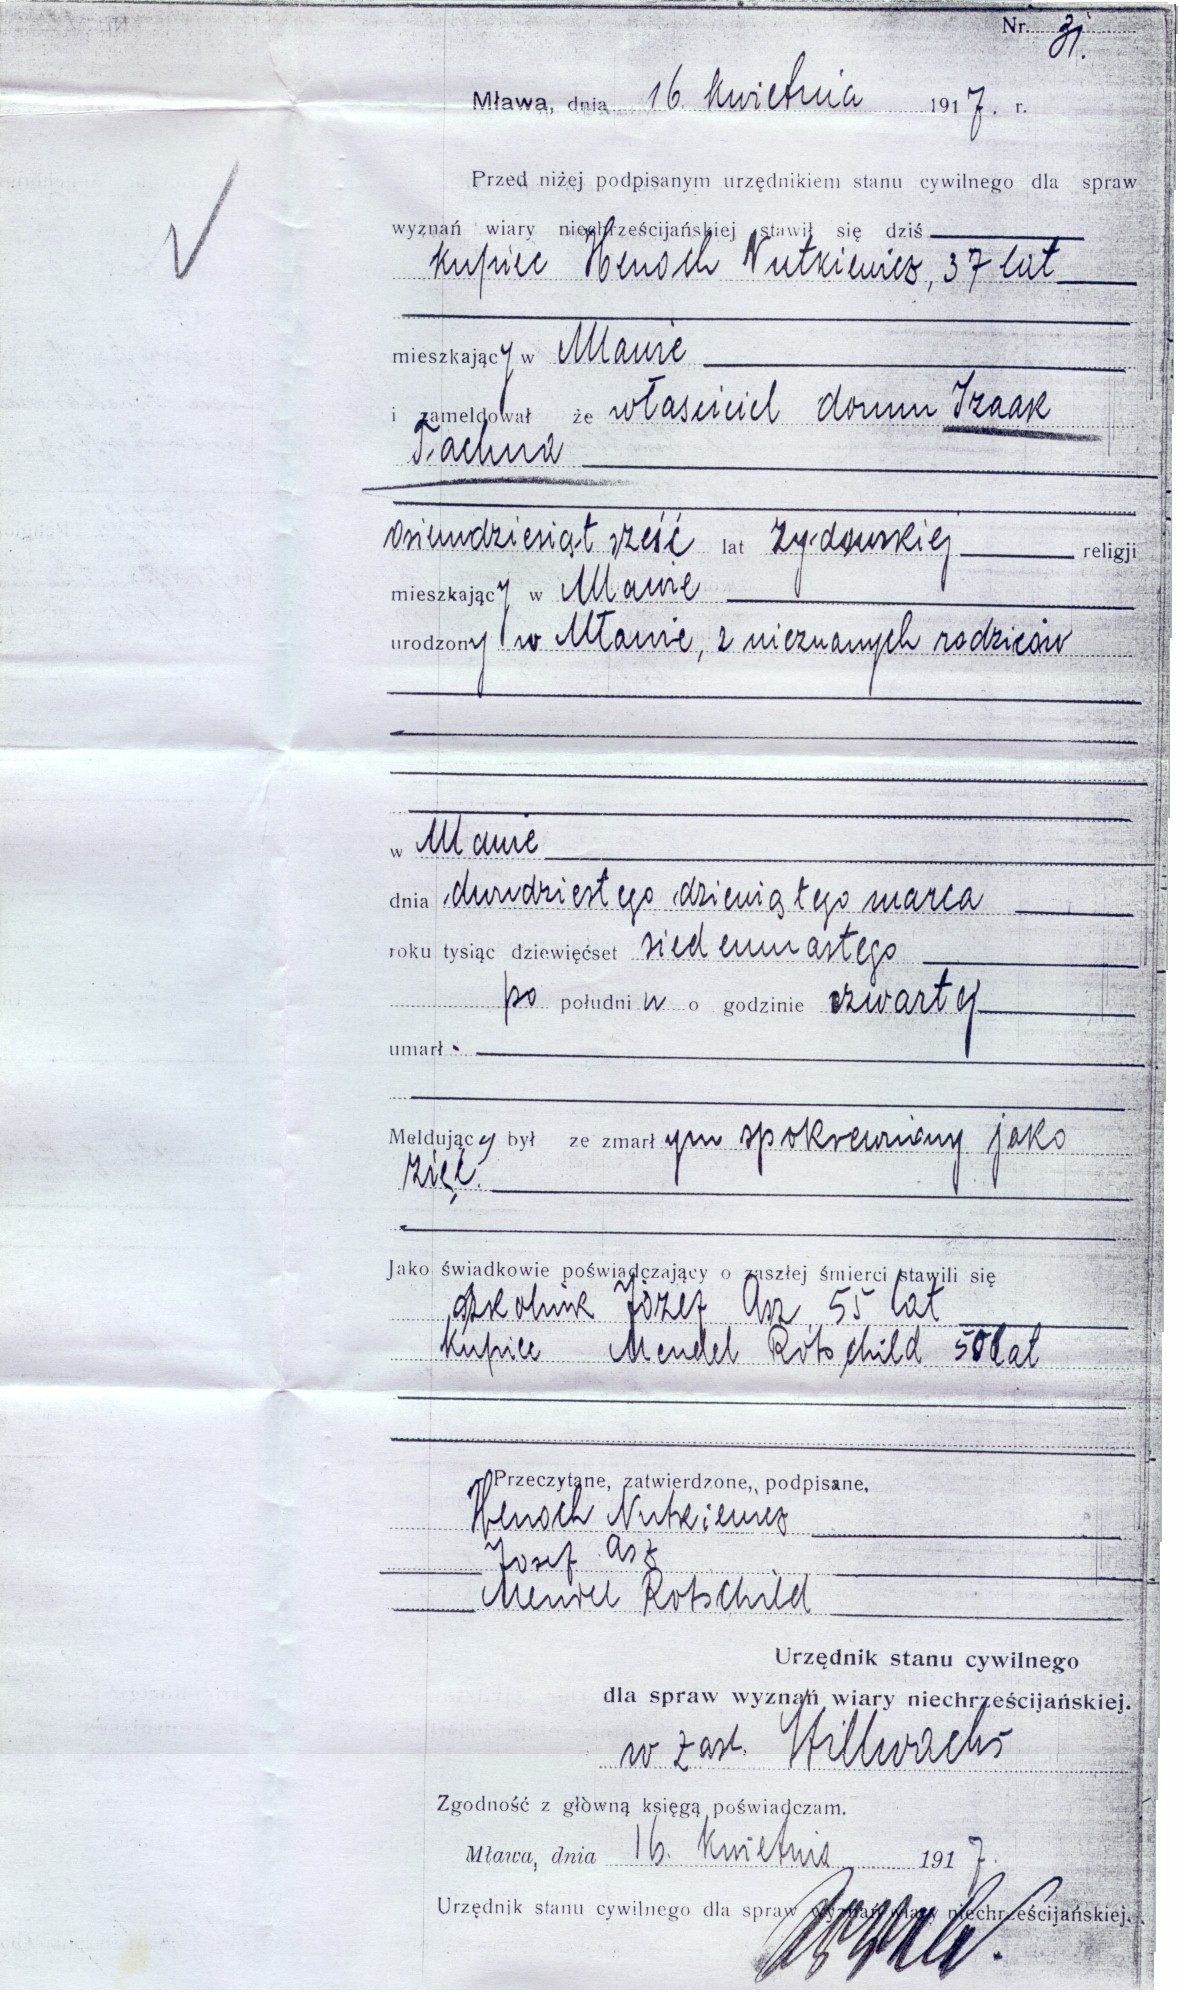 Nr. 31.
Mława, dnia 16. kwietnia 1917. r.
Przed niżej podpisanym urzędnikiem stanu cywilnego dla spraw
wyznań wiary niechrześcijańskiej stawił się dziś
kupiec Henoch Nutkiewicz, 37 lat
mieszkający w Mławie
i zameldował że właściciel domu Izaak
Tachna
osiemdziesiąt sześć lat żydowskiej religji
mieszkający w Mławie
urodzony w Mławie, z nieznanych rodziców
w Mławie
dnia dwudziestego dziewiątego marca
roku tysiąc dziewięćset siedemnastego
po południu o godzinie czwartej
umarł.
Meldujący był ze zmarłym spokrewniony jako
zięć.
Jako świadkowie poświadczający o zaszłej śmierci stawili się
szkolnik Józef Asz, 55 lat
kupiec Mendel Rotschild 50 lat
Przeczytane, zatwierdzone, podpisane,
Henoch Nutkiewicz
Josef Asz
Mendel Rotschild
Urzędnik stanu cywilnego
dla spraw wyznań wiary niechrześcijańskiej.
w zast. Stillwachs
Zgodność z główną księgą poświadczam.
Mława, dnia 16. kwietnia 1917.
Urzędnik stanu cywilnego dla spraw wyznań wiary niechrześcijańskiej.